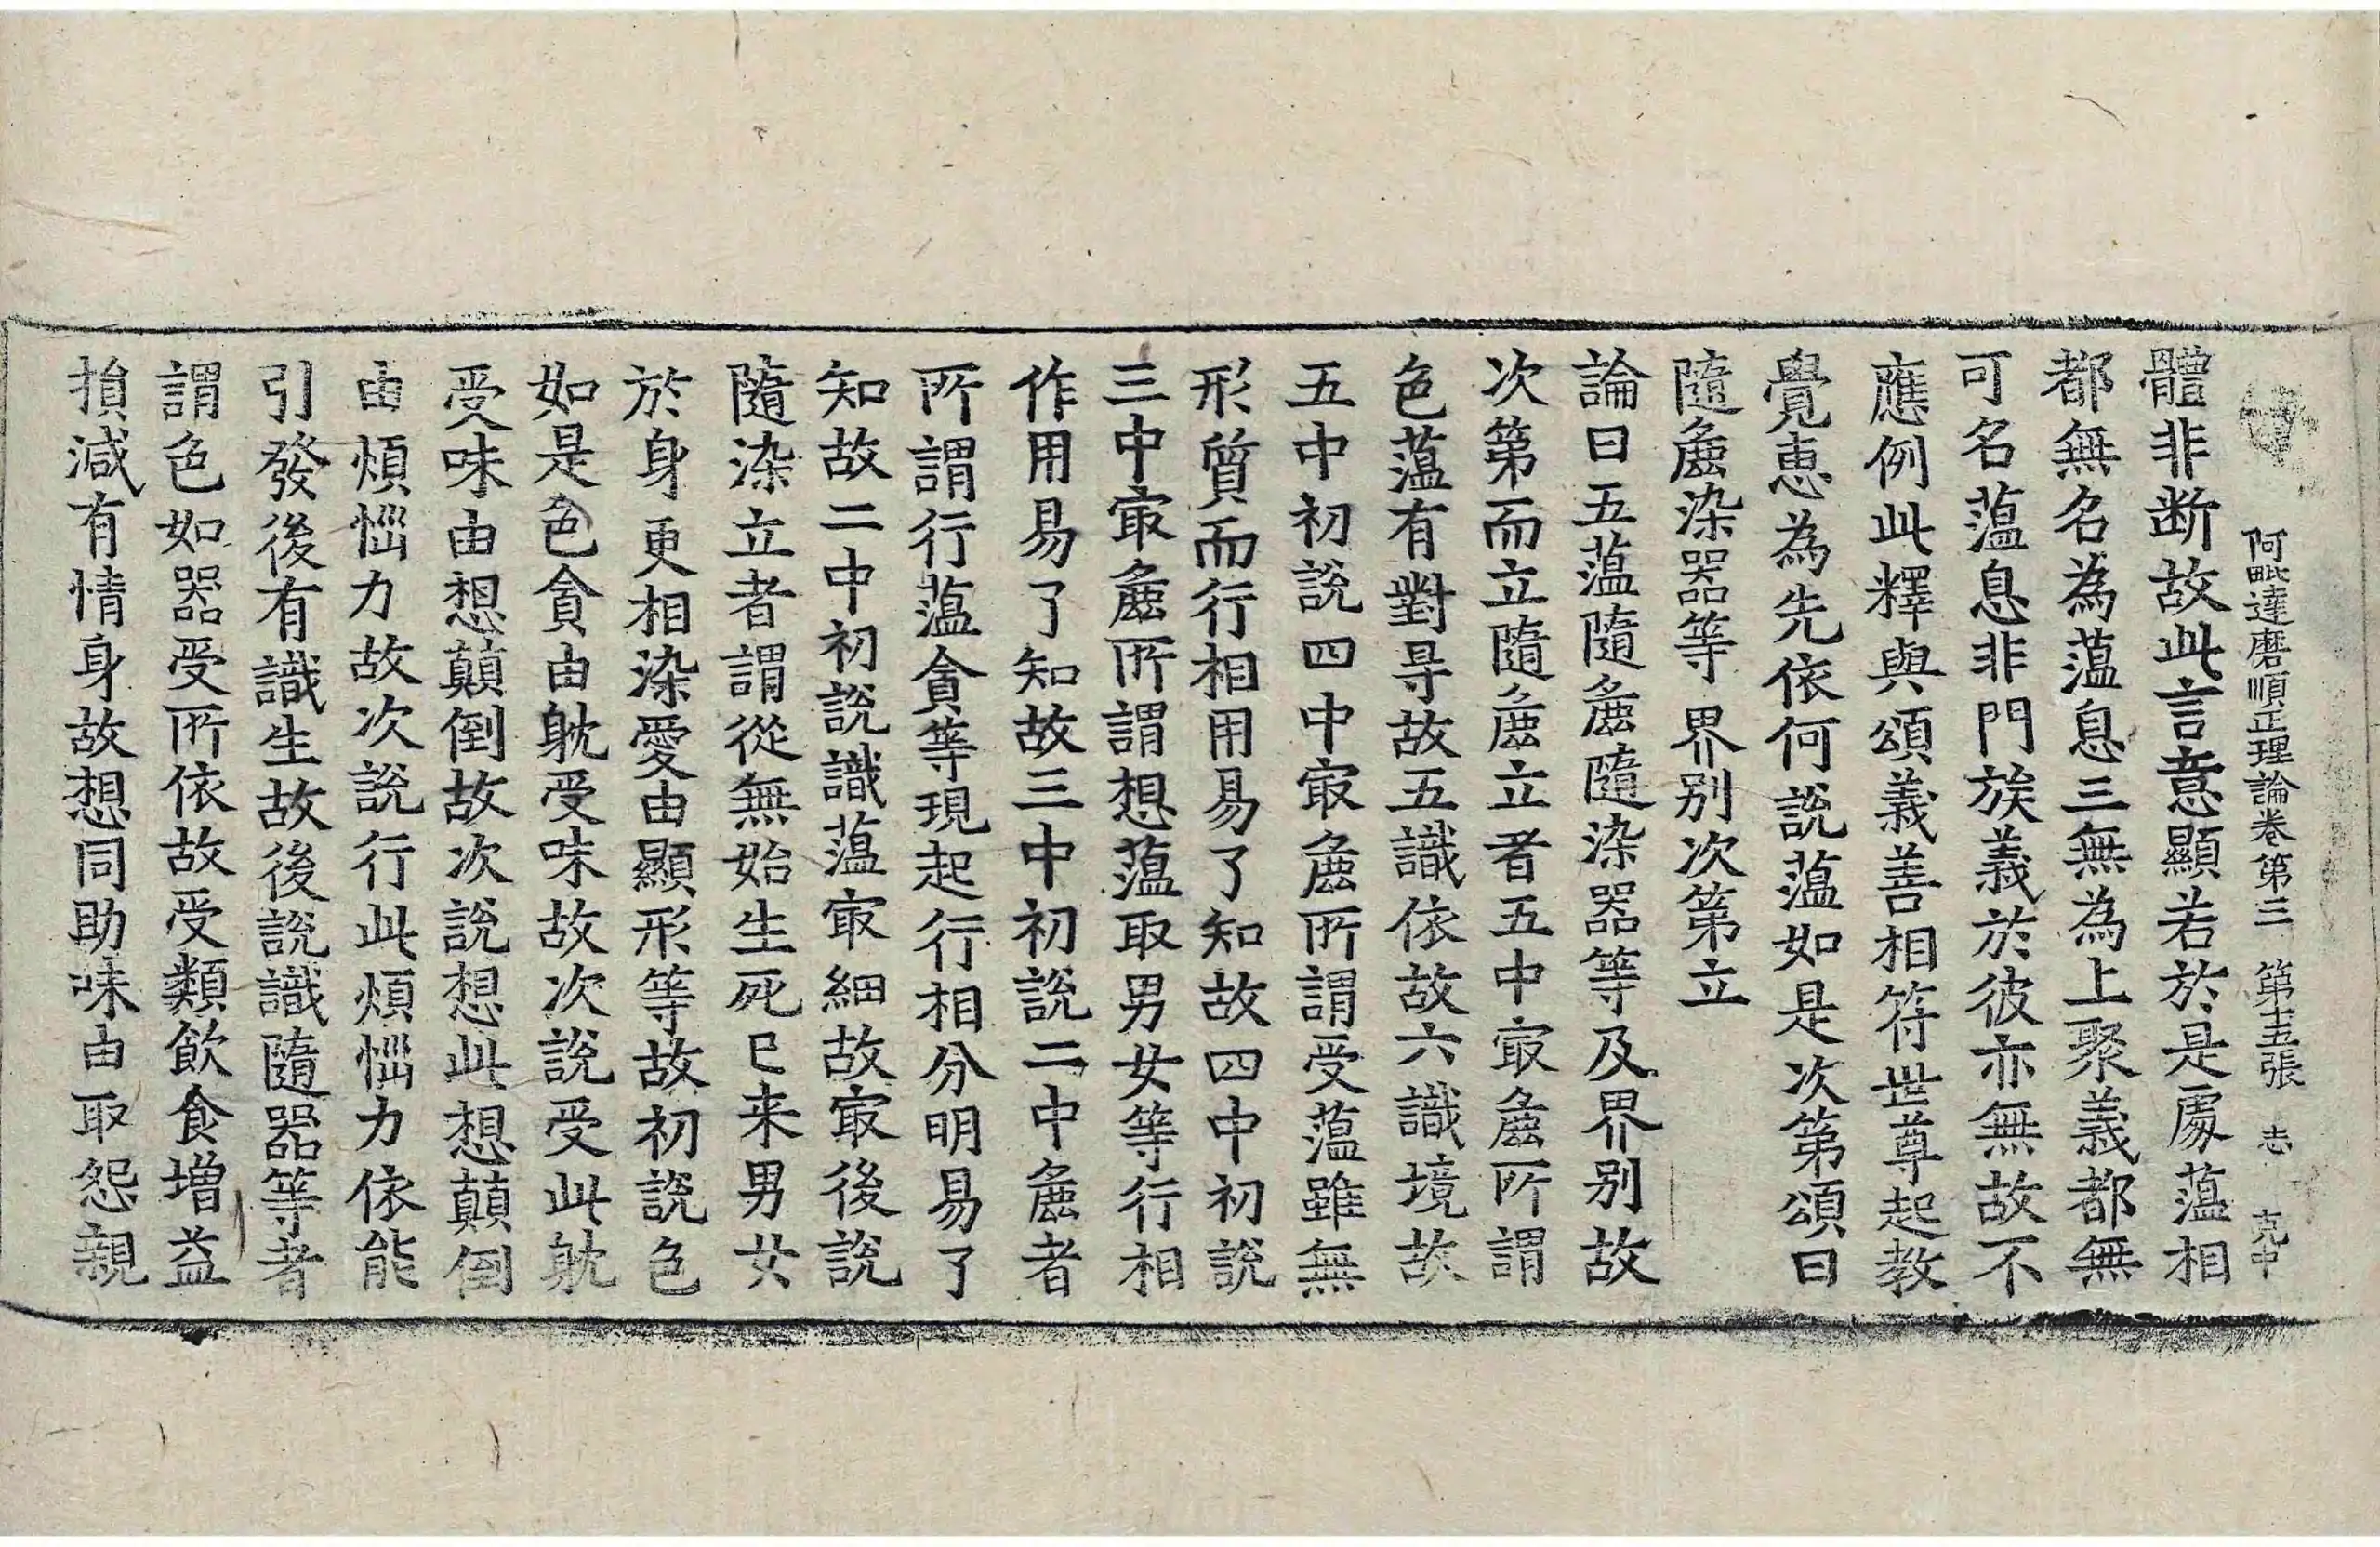 阿毗達磨順正理論卷第三　第十五張　志　克中
體非断故此言意顯若於是處蕰相
都無名為蕰息三無為上聚義都無
可名蕰息非門族義於彼亦無故不
應例此釋與頌義善相符世尊起教
覺恵為先依何說蕰如是次第頌曰
隨麁染器等　界别次第立
論曰五蕰隨麁隨染器等及界别故
次第而立隨麁立者五中㝡麁所謂
色蕰有對㝵故五識依故六識境故
五中初說四中㝡麁所謂受蕰雖無
形質而行相用易了知故四中初說
三中㝡麁所謂想蕰取男女等行相
作用易了知故三中初說二中麁者
所謂行蕰貪等現起行相分明易了
知故二中初說識蕰㝡細故㝡後說
隨染立者謂從無始生死已来男女
於身更相染愛由顯形等故初說色
如是色貪由躭受味故次說受此躭
受味由想顛倒故次說想此想顛倒
由煩惱力故次說行此煩惱力依能
引發後有識生故後說識隨器等者
謂色如器受所依故受類飲食增益
損減有情身故想同助味由取怨親